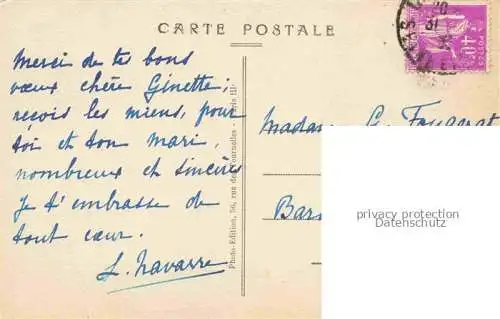 CARTE POSTALE
Merci de te bons
vœux chère Ginette,
reçois les miens, pour
toi et ton mari,
nombreux et sincères
Je t'embrasse de
tout cœur.
L. Navarre
Photo-Edition, 56, rue des Tournelles - Paris III
Madame G. Fougerat
Bars
privacy protection
Datenschutz
POSTES
40c
31